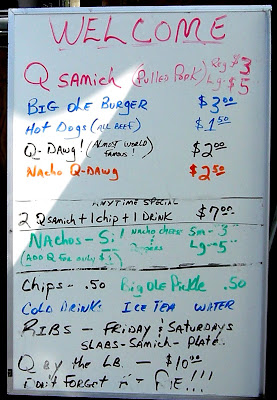 WELCOME
Q SAMICH (PULLED PORK) Reg $3
Lg. $5
BIG OLE BURGER $3.00
HOT DOGS (ALL BEEF) $1.50
Q-DAWG! (ALMOST WORLD FAMOUS!) $2.00
NACHO Q-DAWG $2.50
ANYTIME SPECIAL
2 Q SAMICH + 1 CHIP + 1 DRINK $7.00
NACHOS - Si! NACHO CHEESE Sm - 3
(ADD Q FOR ONLY $1) Lg - 5
CHIPS - .50 Big Ole Pickle .50
COLD DRINK ICE TEA WATER
RIBS - FRIDAY & SATURDAYS
SLABS - SAMICH - PLATE
Q by the LB. - $10.00
DON'T FORGET PIE!!!